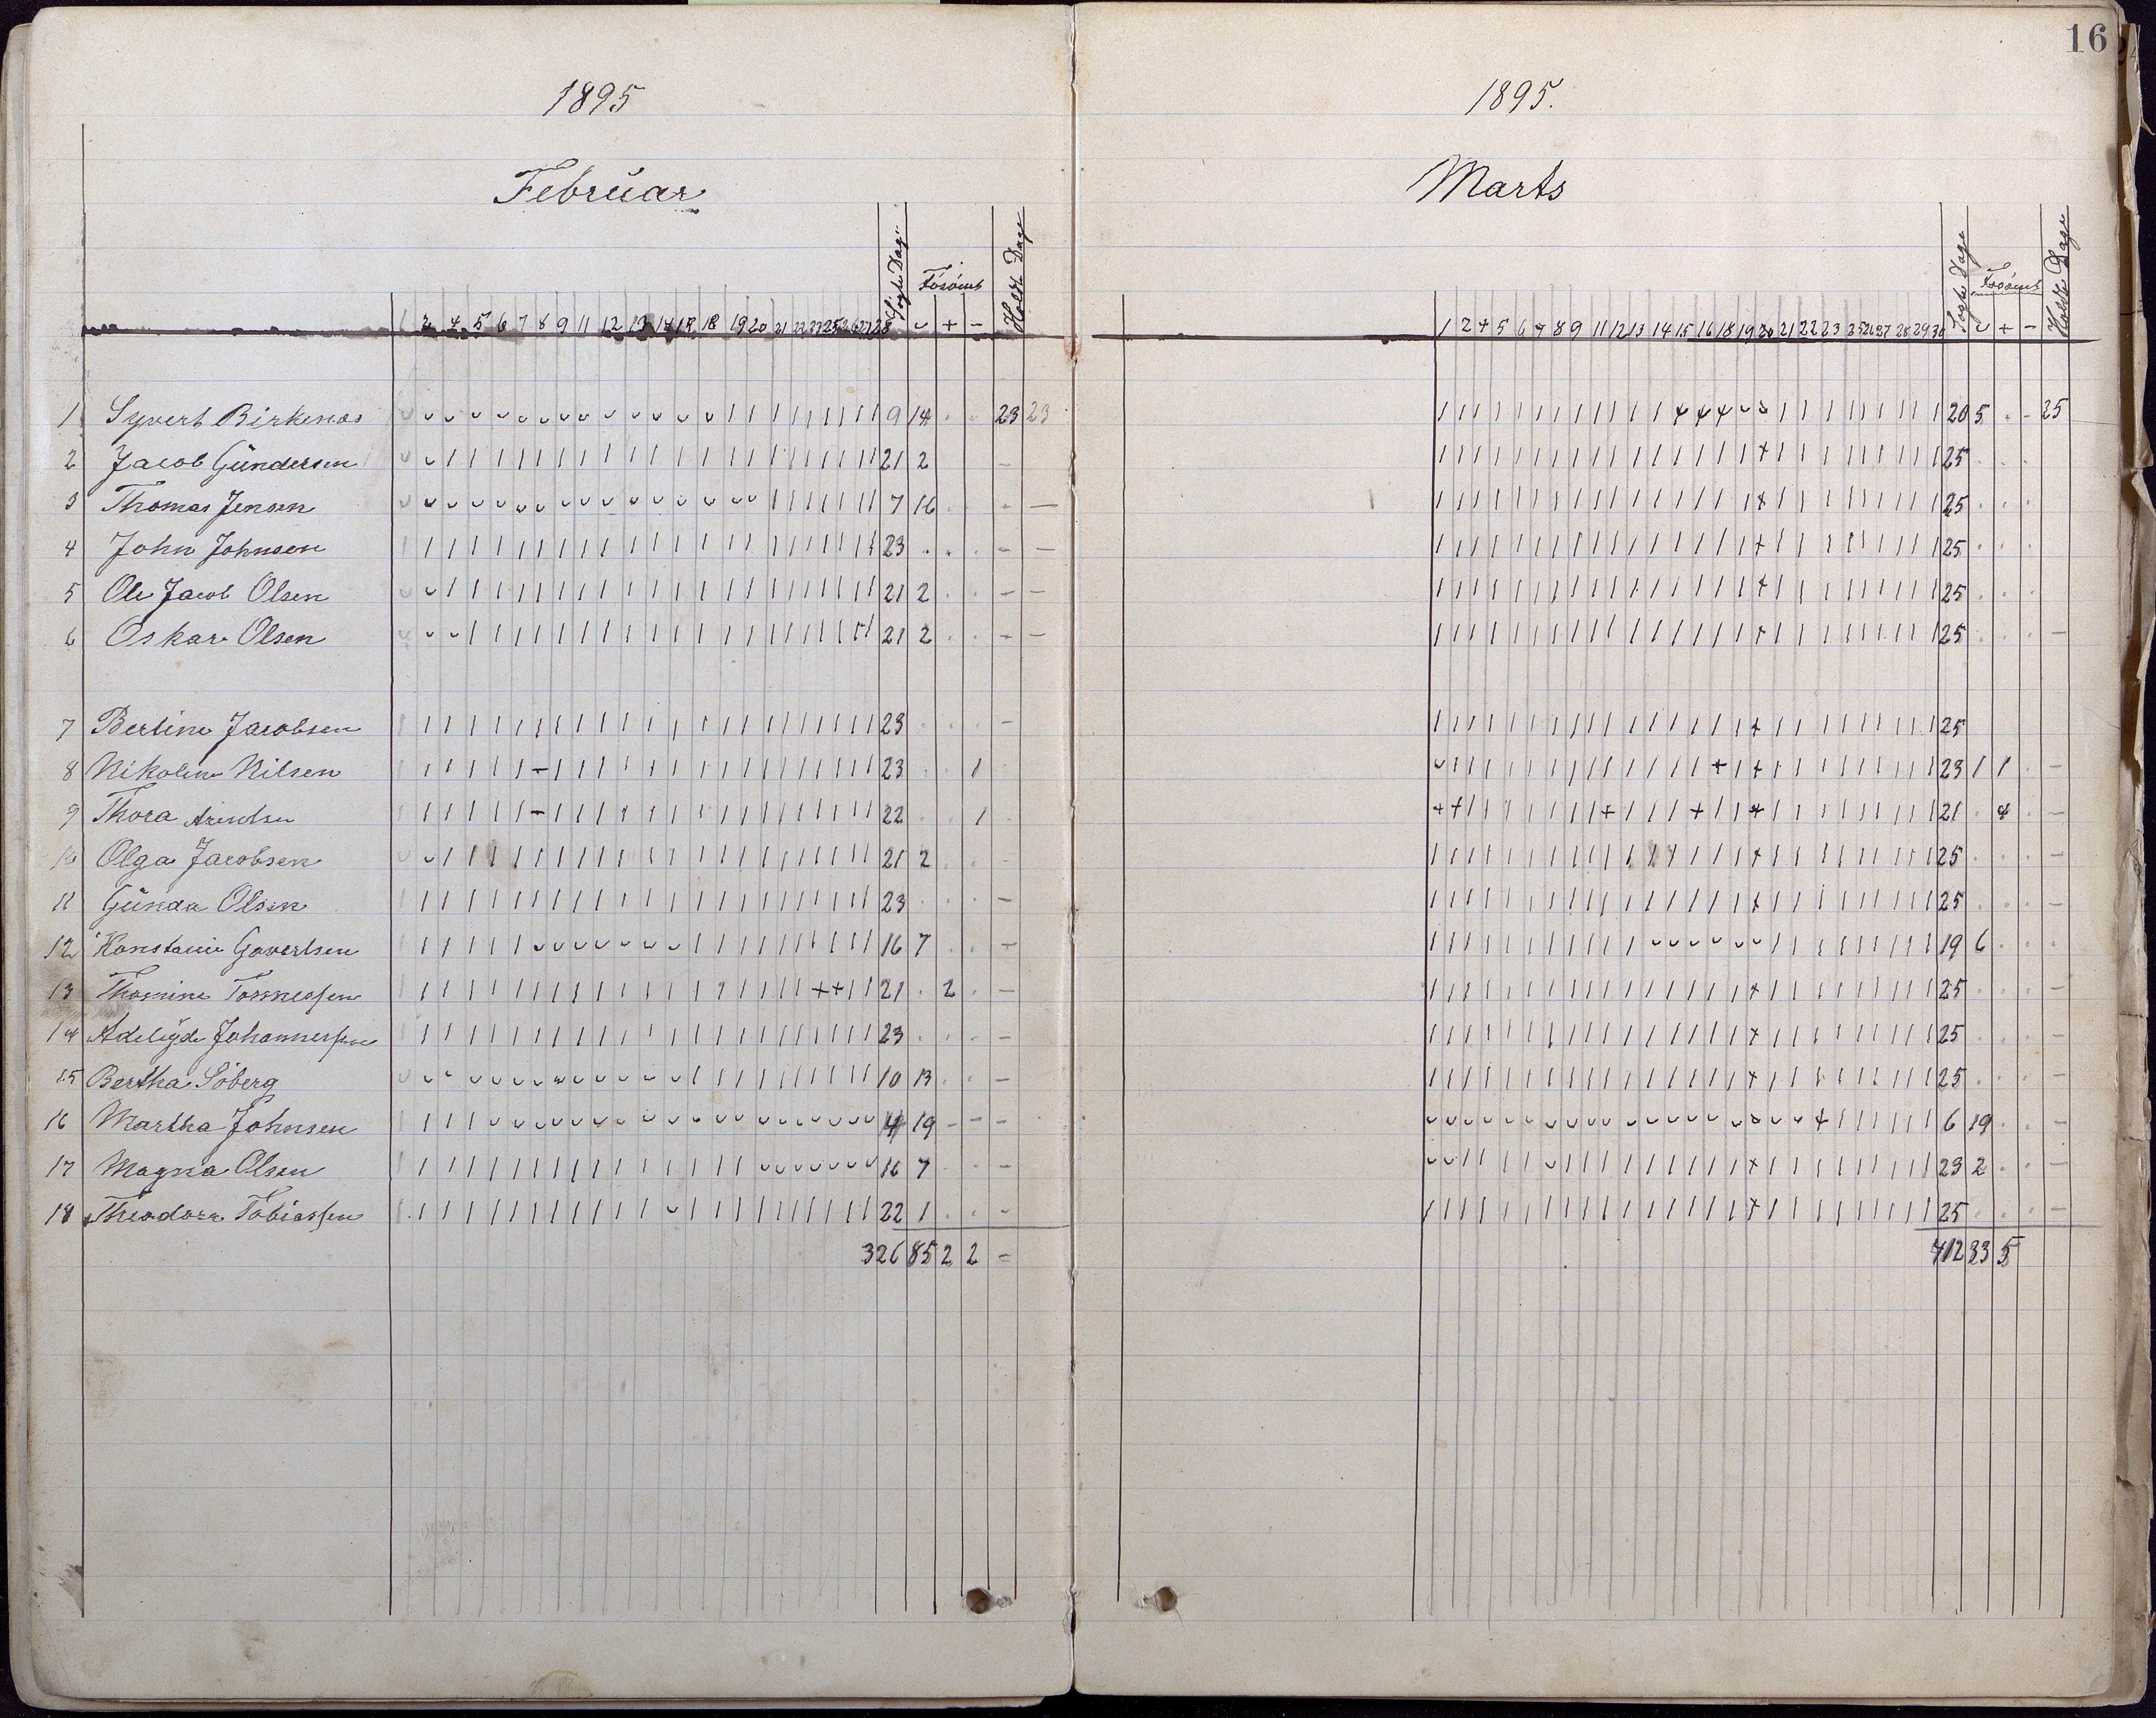 16
1895
Februar
Søgte Dage
Forsømt
Holdte Dage
1 2 4 5 6 7 8 9 11 12 13 14 15 18 19 20 21 22 23 25 26 27 28 ᴗ + −
1 Syvert Birkenæs 9 14 . . 23 23
2 Jacob Gündersen 21 2 −
3 Thomas Jensen 7 16 . . - —
4 John Johnson 23 . . . - —
5 Ole Jacob Olsen 21 2 . . - —
6 Oskar Olsen 21 2 . . - —
7 Bertine Jacobsen 23 . . . −
8 Nikoline Nilsen 23 . . 1
9 Thora Arentsen 22 . . 1
10 Olga Jacobsen 21 2 . . −
11 Günda Olsen 23 . . . −
12 Konstanse Govertsen 16 7 . . −
13 Thomine Tønnessen 21 . 2 . −
14 Adeleyde Johannessen 23 . . . −
15 Bertha Söberg 10 13 . . −
16 Martha Johnsen 4 19 − − −
17 Magna Olsen 16 7 . . −
18 Theodora Tobiassen 22 1 . . −
326 85 2 2 =
1895.
Marts
Søgte Dage
Forsømt
Holdte Dage
1 2 4 5 6 7 8 9 11 12 13 14 15 16 18 19 20 21 22 23 25 26 27 28 29 30 ᴗ + −
20 5 . - 25
25 . . .
25 . . .
25 . . .
25 . . .
25 . . . −
25
23 1 1 . −
21 . 4 . −
25 . . . −
25 . . . −
19 6 . . .
25 . . . −
25 . . . −
25 . . . −
6 19 . . −
23 2 . . −
25 . . . −
412 33 5